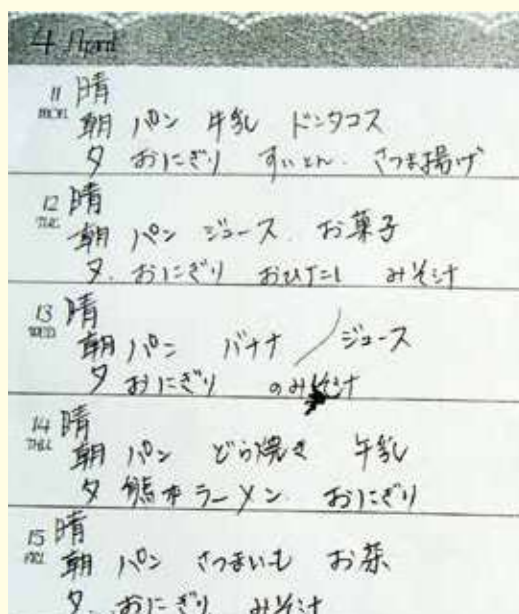 4 April
11 晴
MON 朝 パン 牛乳 ドンタコス
夕 おにぎり すいとん さつま揚げ
12 晴
TUE 朝 パン ジュース お菓子
夕 おにぎり おひたし みそ汁
13 晴
WED 朝 パン バナナ ジュース
夕 おにぎり のみそ汁
14 晴
THU 朝 パン どら焼き 牛乳
夕 熊本ラーメン おにぎり
15 晴
FRI 朝 パン さつまいも お茶
夕 おにぎり みそ汁